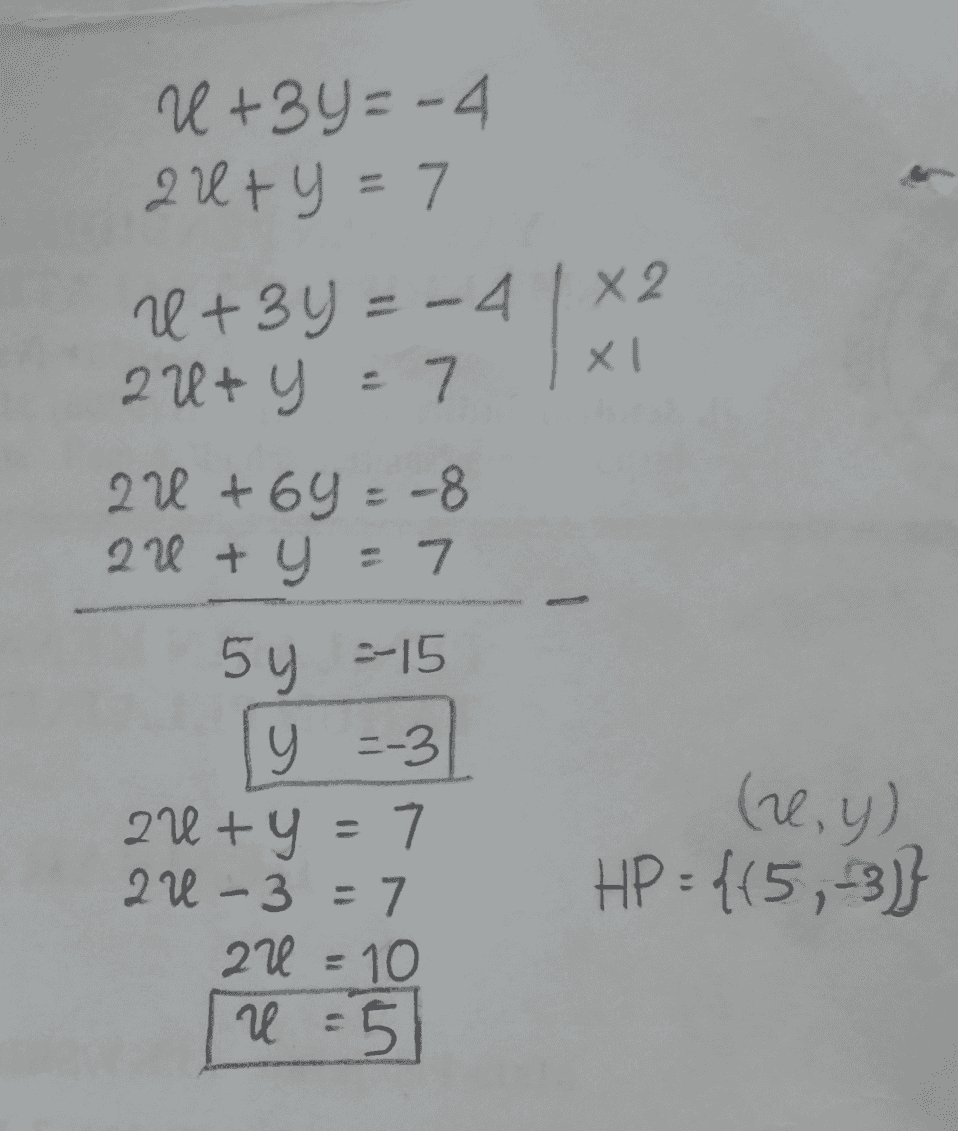 x + 3y = -4
2x + y = 7
x + 3y = -4 | x2
2x + y = 7 | x1
2x + 6y = -8
2x + y = 7
-
5y = -15
y = -3
2x + y = 7
2x - 3 = 7
2x = 10
x = 5
(x, y)
HP = {(5, -3)}